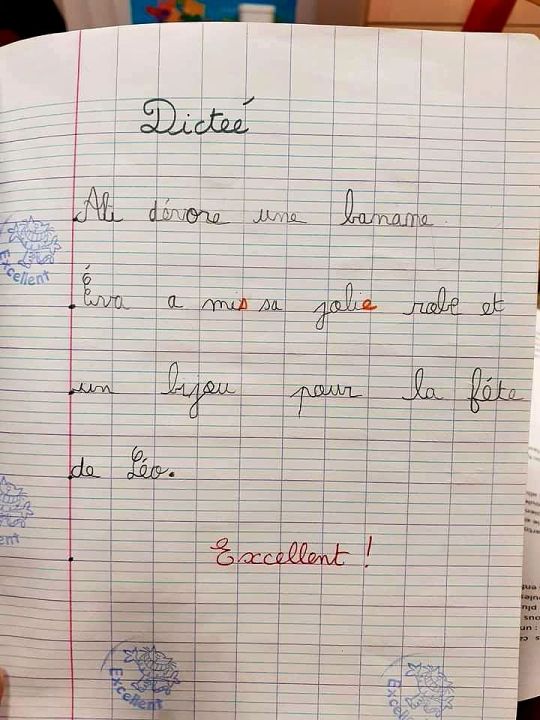 Dicteé
Ali dévore une banane.
Excellent
Éva a mis sa jolie robe et
un bijou pour la féte
de Léo.
Excellent !
Excellent
Excellent